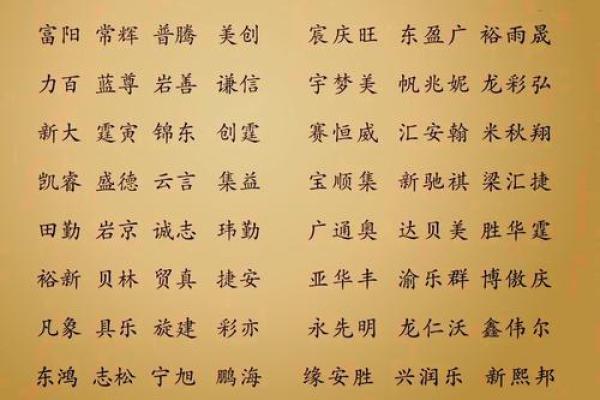 富阳 常辉 普腾 美创 宸庆旺 东盈广 裕雨晟
力百 蓝尊 岩善 谦信 宇梦美 帆兆妮 龙彩弘
新大 霆寅 锦东 创霆 赛恒威 汇安翰 米秋翔
凯睿 盛德 云言 集益 宝顺集 新驰祺 梁汇捷
田勤 岩京 诚志 玮勤 广通奥 达贝美 胜华霆
裕新 贝林 贸真 捷安 亚华丰 渝乐群 博傲庆
凡象 具乐 旋建 彩亦 永先明 龙仁沃 鑫伟尔
东鸿 志松 宁旭 鹏海 缘安胜 兴润乐 新熙邦